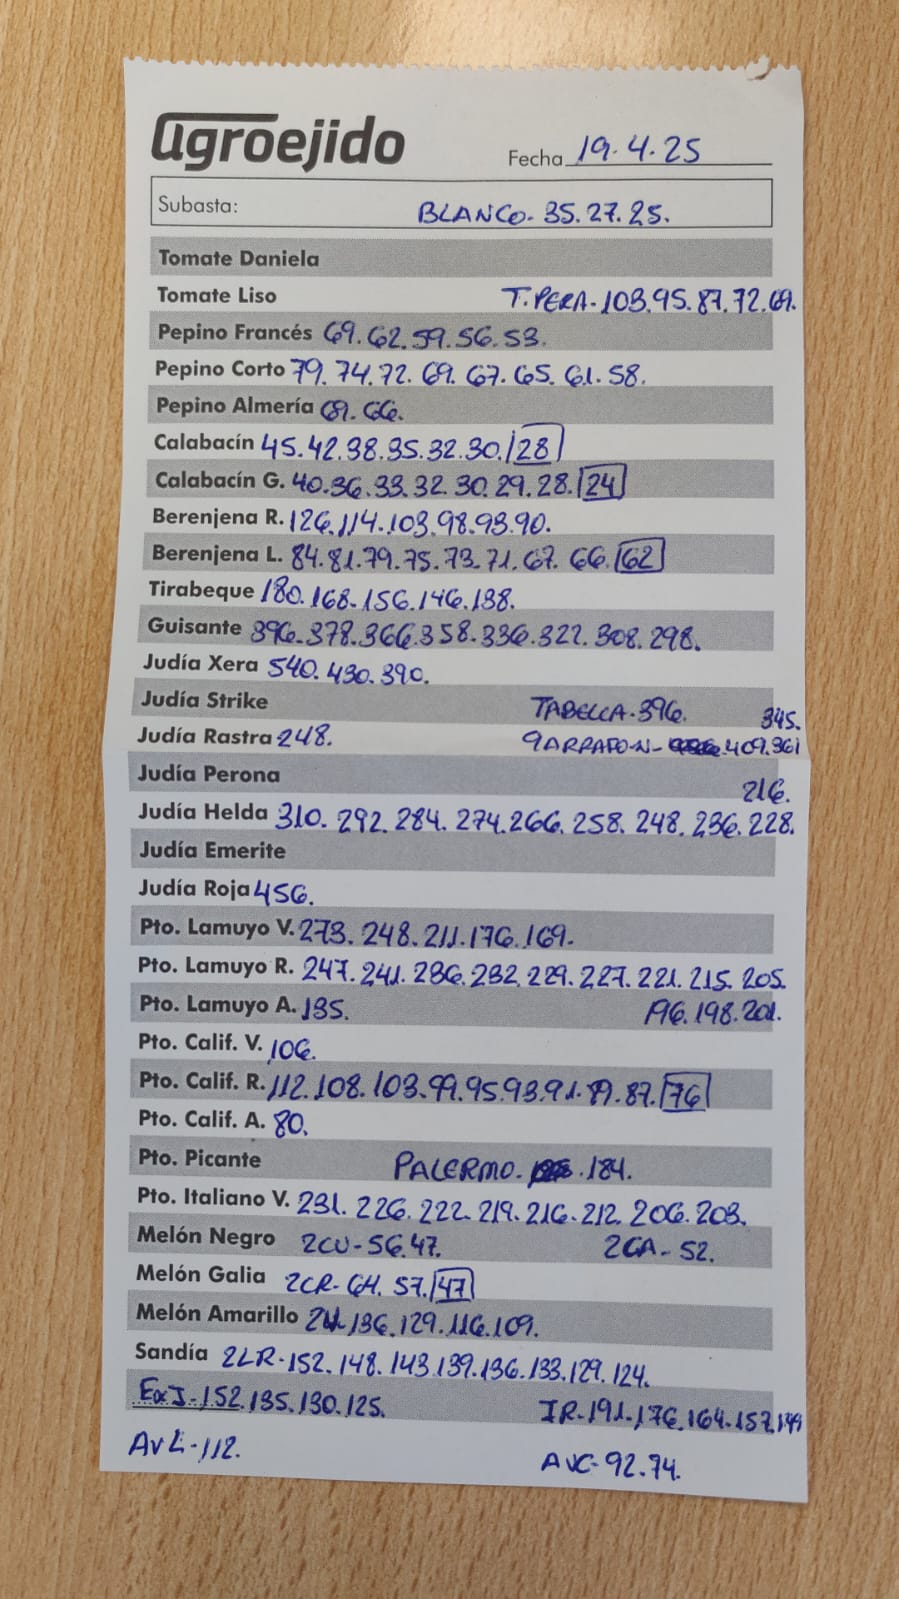 agroejido
Fecha 19.4.25
Subasta: BLANCO. 35.27.25.
Tomate Daniela
Tomate Liso T.PERA-103.95.87.72.69.
Pepino Francés 69.62.59.56.53.
Pepino Corto 79.74.72.69.67.65.61.58.
Pepino Almería 69.66.
Calabacín 45.42.38.35.32.30./28
Calabacín G. 40.36.33.32.30.29.28.24
Berenjena R. 126.114.103.98.93.90.
Berenjena L. 84.81.79.75.73.71.67.66.62
Tirabeque 180.168.156.146.138.
Guisante 396.378.366.358.336.322.308.298.
Judía Xera 540.430.390.
Judía Strike TABELLA.396. 345.
Judía Rastra 248. GARRAFO-N- 409.361
Judía Perona 216.
Judía Helda 310.292.284.274.266.258.248.236.228.
Judía Emerite
Judía Roja 456.
Pto. Lamuyo V. 273.248.211.176.169.
Pto. Lamuyo R. 247.241.236.232.229.227.221.215.205.
Pto. Lamuyo A. 135. 196.198.201.
Pto. Calif. V. 106.
Pto. Calif. R. 112.108.103.99.95.93.91.89.87.76
Pto. Calif. A. 80.
Pto. Picante PALERMO. .184.
Pto. Italiano V. 231.226.222.219.216.212.206.203.
Melón Negro 2CU-56.47. 2CA-52.
Melón Galia 2CR-64.57.47
Melón Amarillo 136.129.116.109.
Sandía 2LR-152.148.143.139.136.133.129.124.
ExJ-152.135.130.125. IR-191.176.164.157.149
AVL-112. AVC-92.74.